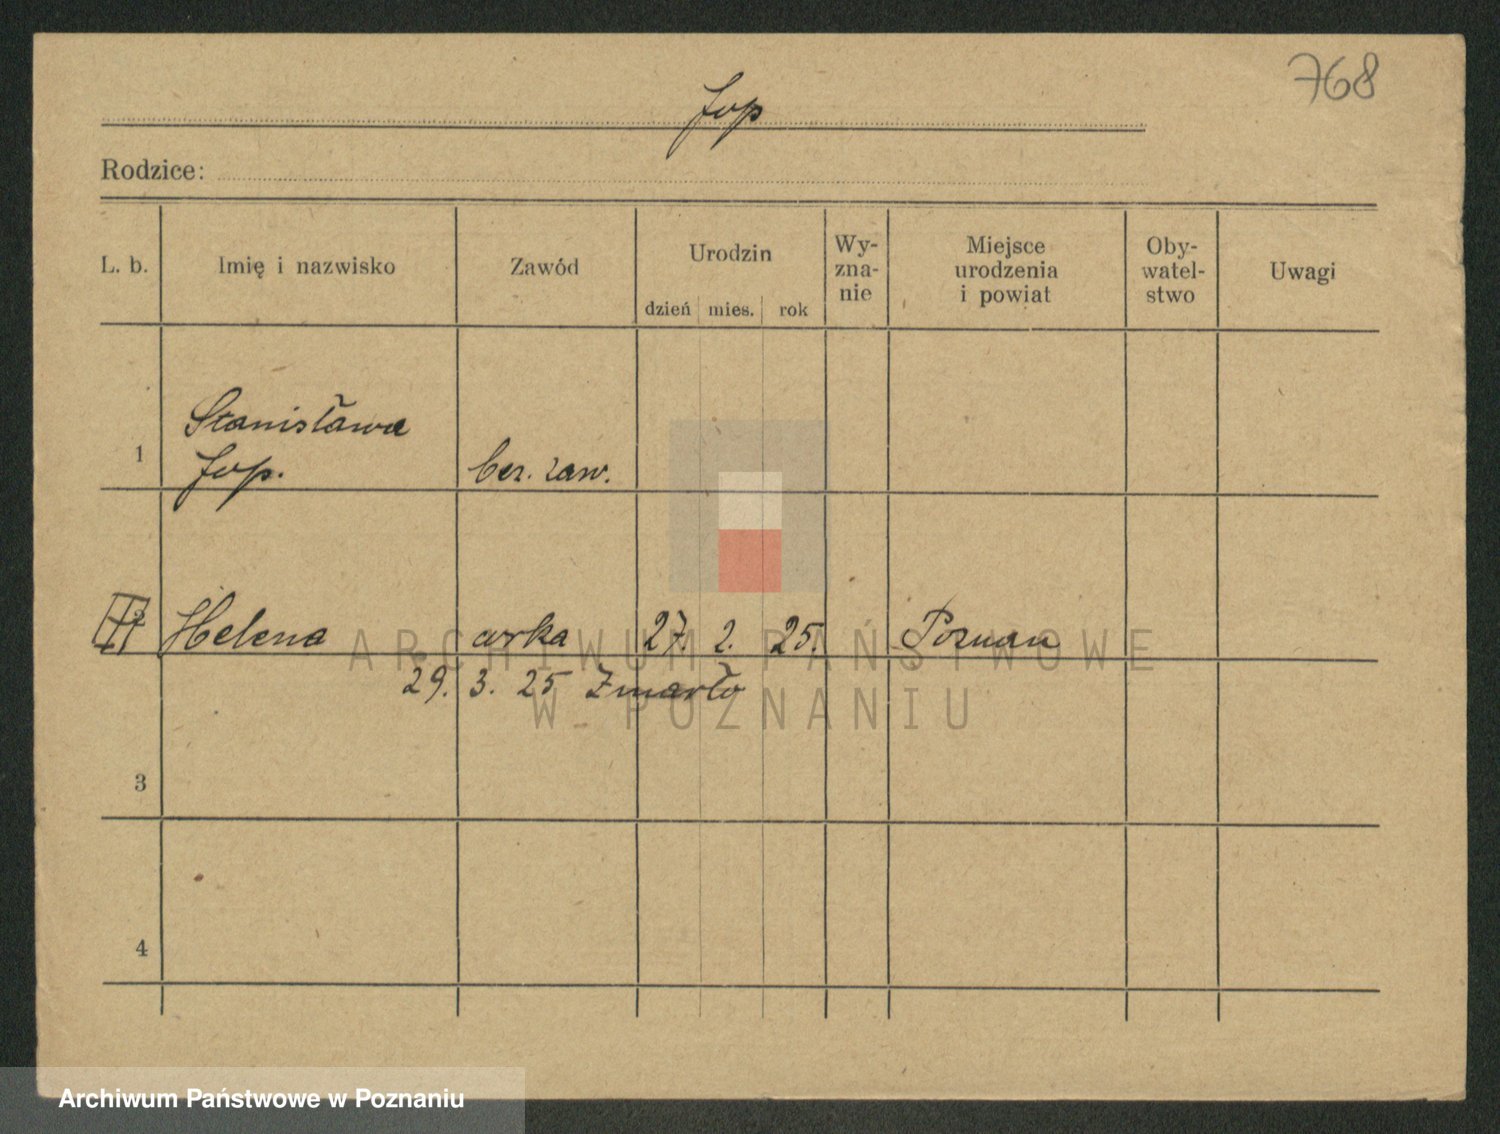 768
Jop
Rodzice:
L. b. Imię i nazwisko Zawód Urodzin dzień mies. rok Wy- zna- nie Miejsce urodzenia i powiat Oby- watel- stwo Uwagi
Stanisława
1 Jop. bez. zaw.
2 Helena corka 27. 2. 25. Poznan
29. 3. 25 Zmarło
3
4
ARCHIWUM PAŃSTWOWE
W POZNANIU
Archiwum Państwowe w Poznaniu